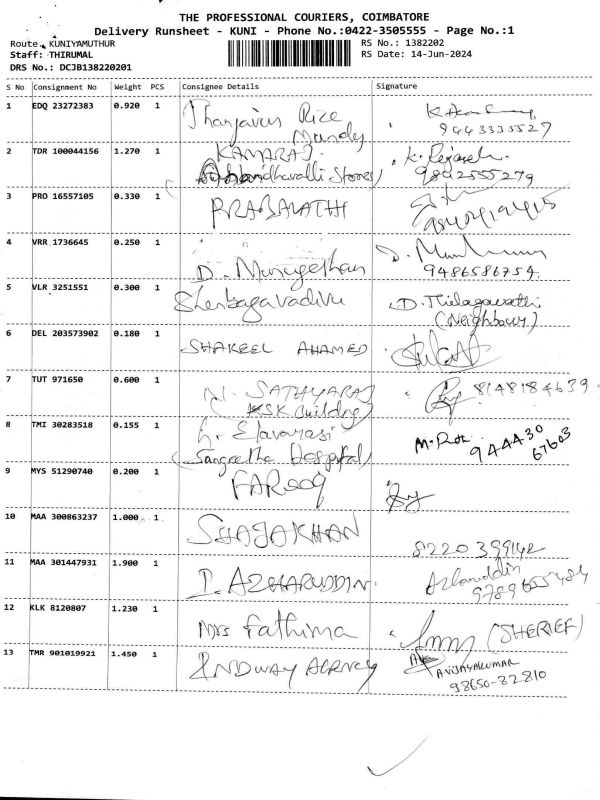 THE PROFESSIONAL COURIERS, COIMBATORE
Delivery Runsheet - KUNI - Phone No.:0422-3505555 - Page No.:1
Route. KUNIYAMUTHUR RS No.: 1382202
Staff: THIRUMAL RS Date: 14-Jun-2024
DRS No.: DCJB138220201
S No Consignment No Weight PCS Consignee Details Signature
1 EDQ 23272383 0.920 1 Thanjavur Rice
Mandy 9443335527
2 TDR 100044156 1.270 1 KAMARAJ
Stores) 9842555279
3 PRO 16557105 0.330 1 PRABAVATHI
4 VRR 1736645 0.250 1 D. Murugeshan
9486586754.
5 VLR 3251551 0.300 1 Shenbagavadivu D. Thilagavathi
(Neighbour)
6 DEL 203573902 0.180 1 SHAKEEL AHAMED
7 TUT 971650 0.600 1 N. SATHYARAJ 8148184639
(KSK Building)
8 TMI 30283518 0.155 1 Elavarasi 94443 0
(Sangeetha Hospital) 67603
9 MYS 51290740 0.200 1 FAROOQ
10 MAA 300863237 1.000 1 SHAJAKHAN
8220399142
11 MAA 301447931 1.900 1 I. AZHARUDDIN. Azharuddin
9789655484
12 KLK 8120807 1.230 1 Mrs Fathima (SHERIEF)
13 TMR 901019921 1.450 1 INDWAY AGENCY
A VIJAYAKUMAR
98650-82810